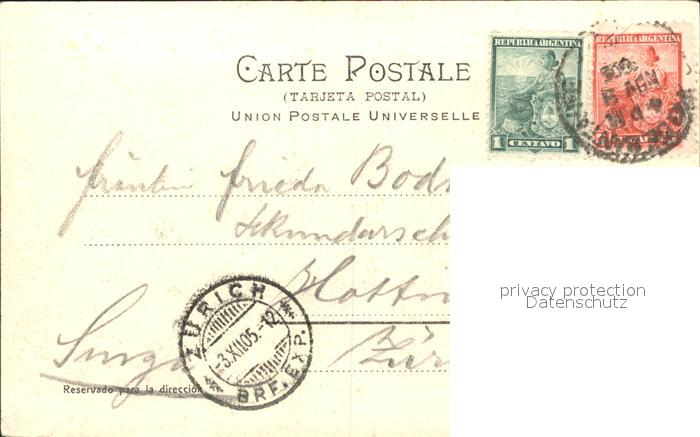 REPÚBLICA ARGENTINA
1 CENTAVO 1
REPÚBLICA ARGENTINA
CARTE POSTALE
(TARJETA POSTAL)
UNION POSTALE UNIVERSELLE
Fräulein Frieda Bod
Sekundarsch
Hottin
privacy protection
Datenschutz
ZÜRICH
-3.XII.05.-12
BRF. EXP.
Zür
Reservado para la dirección